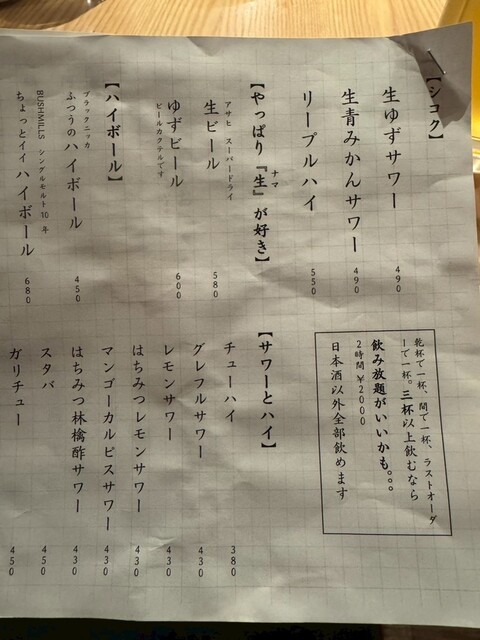 【シコク】
生ゆずサワー 490
生青みかんサワー 490
リープルハイ 550
【やっぱり『生』が好き】
ナマ
アサヒ スーパードライ
生ビール 580
ゆずビール 600
ビールカクテルです
【ハイボール】
ブラックニッカ
ふつうのハイボール 450
BUSHMILLS シングルモルト 10年
ちょっとイイ ハイボール 680
乾杯で一杯、間で一杯、ラストオーダ
ーで一杯。三杯以上飲むなら
飲み放題がいいかも。。。
2時間 ¥2000
日本酒以外全部飲めます
【サワーとハイ】
チューハイ 380
グレフルサワー 430
レモンサワー 430
はちみつレモンサワー 430
マンゴーカルピスサワー 430
はちみつ林檎酢サワー 430
スタバ 450
ガリチュー 450